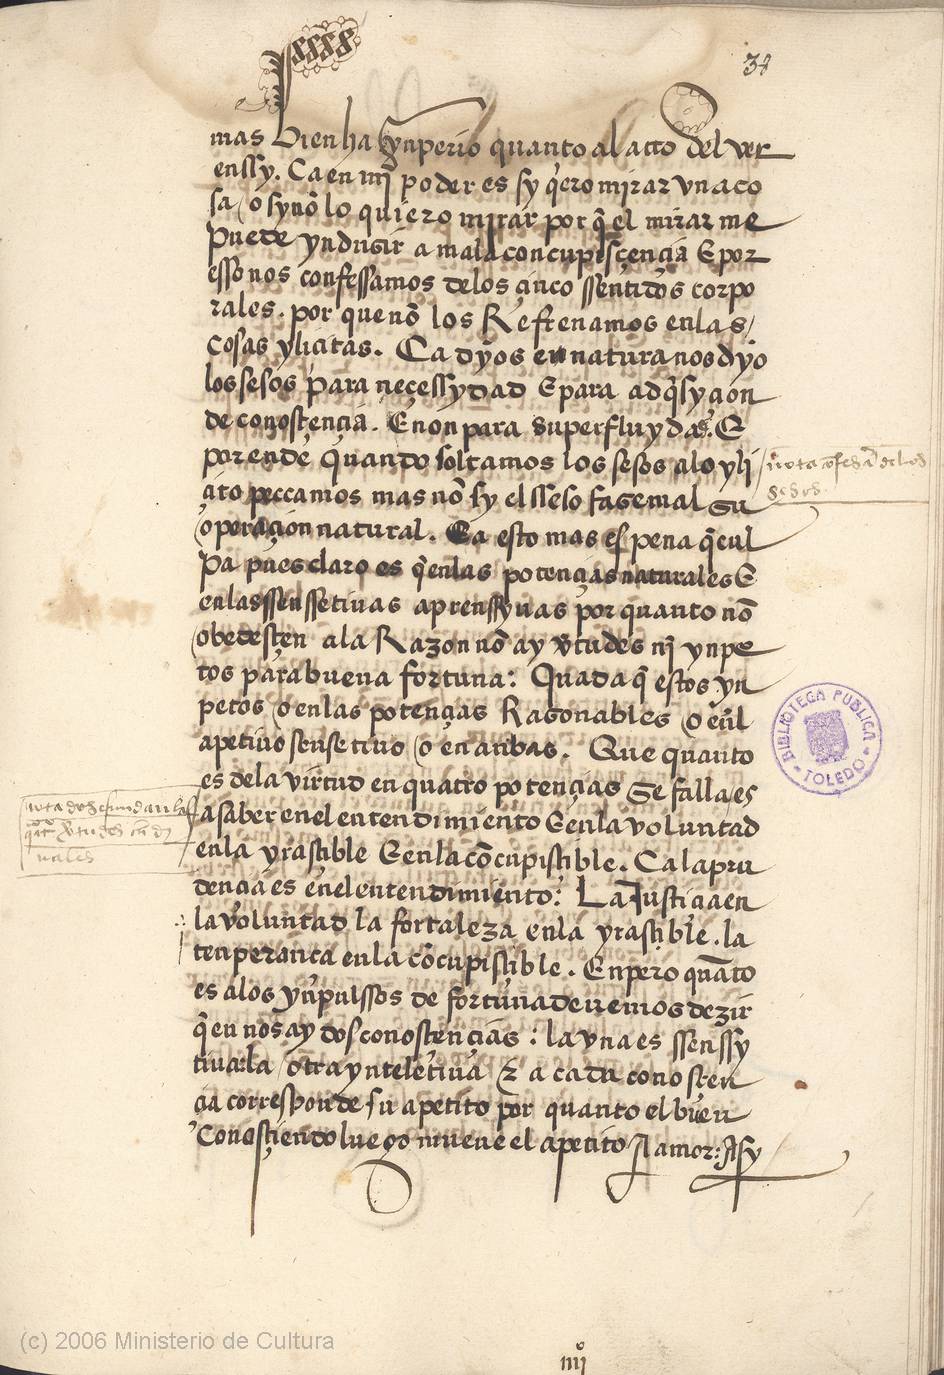 38
mas bien ha ynperio quanto al acto del ver
enssy. Ca en mj poder es sy q̃ero mirar vna co
sa / o sy nõ lo quiero mirar por q̃ el mirar me
puede yndusir a mala concupisçençia E por
esso nos confessamos delos çinco ssentidos corpo
rales. por que nõ los Refrenamos en las
cosas yliçitas. Ca dyos en natura nos dyo
los sesos para neçessydad E para adq̃syçion
de conosçençia. E non para superfluydad. E
por ende quando soltamos los sesos alo yli
çito peccamos mas nõ sy el sseso fase mal su
operaçion natural. Ca esto mas es pena q̃ cul
pa pues claro es q̃ en las potençias naturales E
en las ssenssetiuas aprenssyuas por quanto nõ
obedesçen ala Razon nõ ay ṽtudes nj ynpe
tos para buena fortuna: Quada q̃ estos yn
petos / o en las potençias Rasonables / o enl
apetiuo sensetiuo / o en anbas. Que quanto
es dela virtud en quatro potençias se falla es
a saber en el entendimiento E en la voluntad
en la yrasçible E en la cõcupisçible. Ca la pru
dençia es en el entendimiento: La Justiçia en
la voluntad la fortaleza en la yrasçible. la
tenperança en la cõcupisçible. Enpero quãto
es alos ynpulssos de fortuna deuemos dezir
q̃ en nos ay dos conosçençias: la vna es ssenssy
tiua: la / otra ynteletiua E a cada conosçen
çia corresponde su apetito por quanto el bien
Conosçiendo luego mueue el apetito Al amor: Asy
nota
nota
BIBLIOTECA PUBLICA
TOLEDO
(c) 2006 Ministerio de Cultura
iiijº